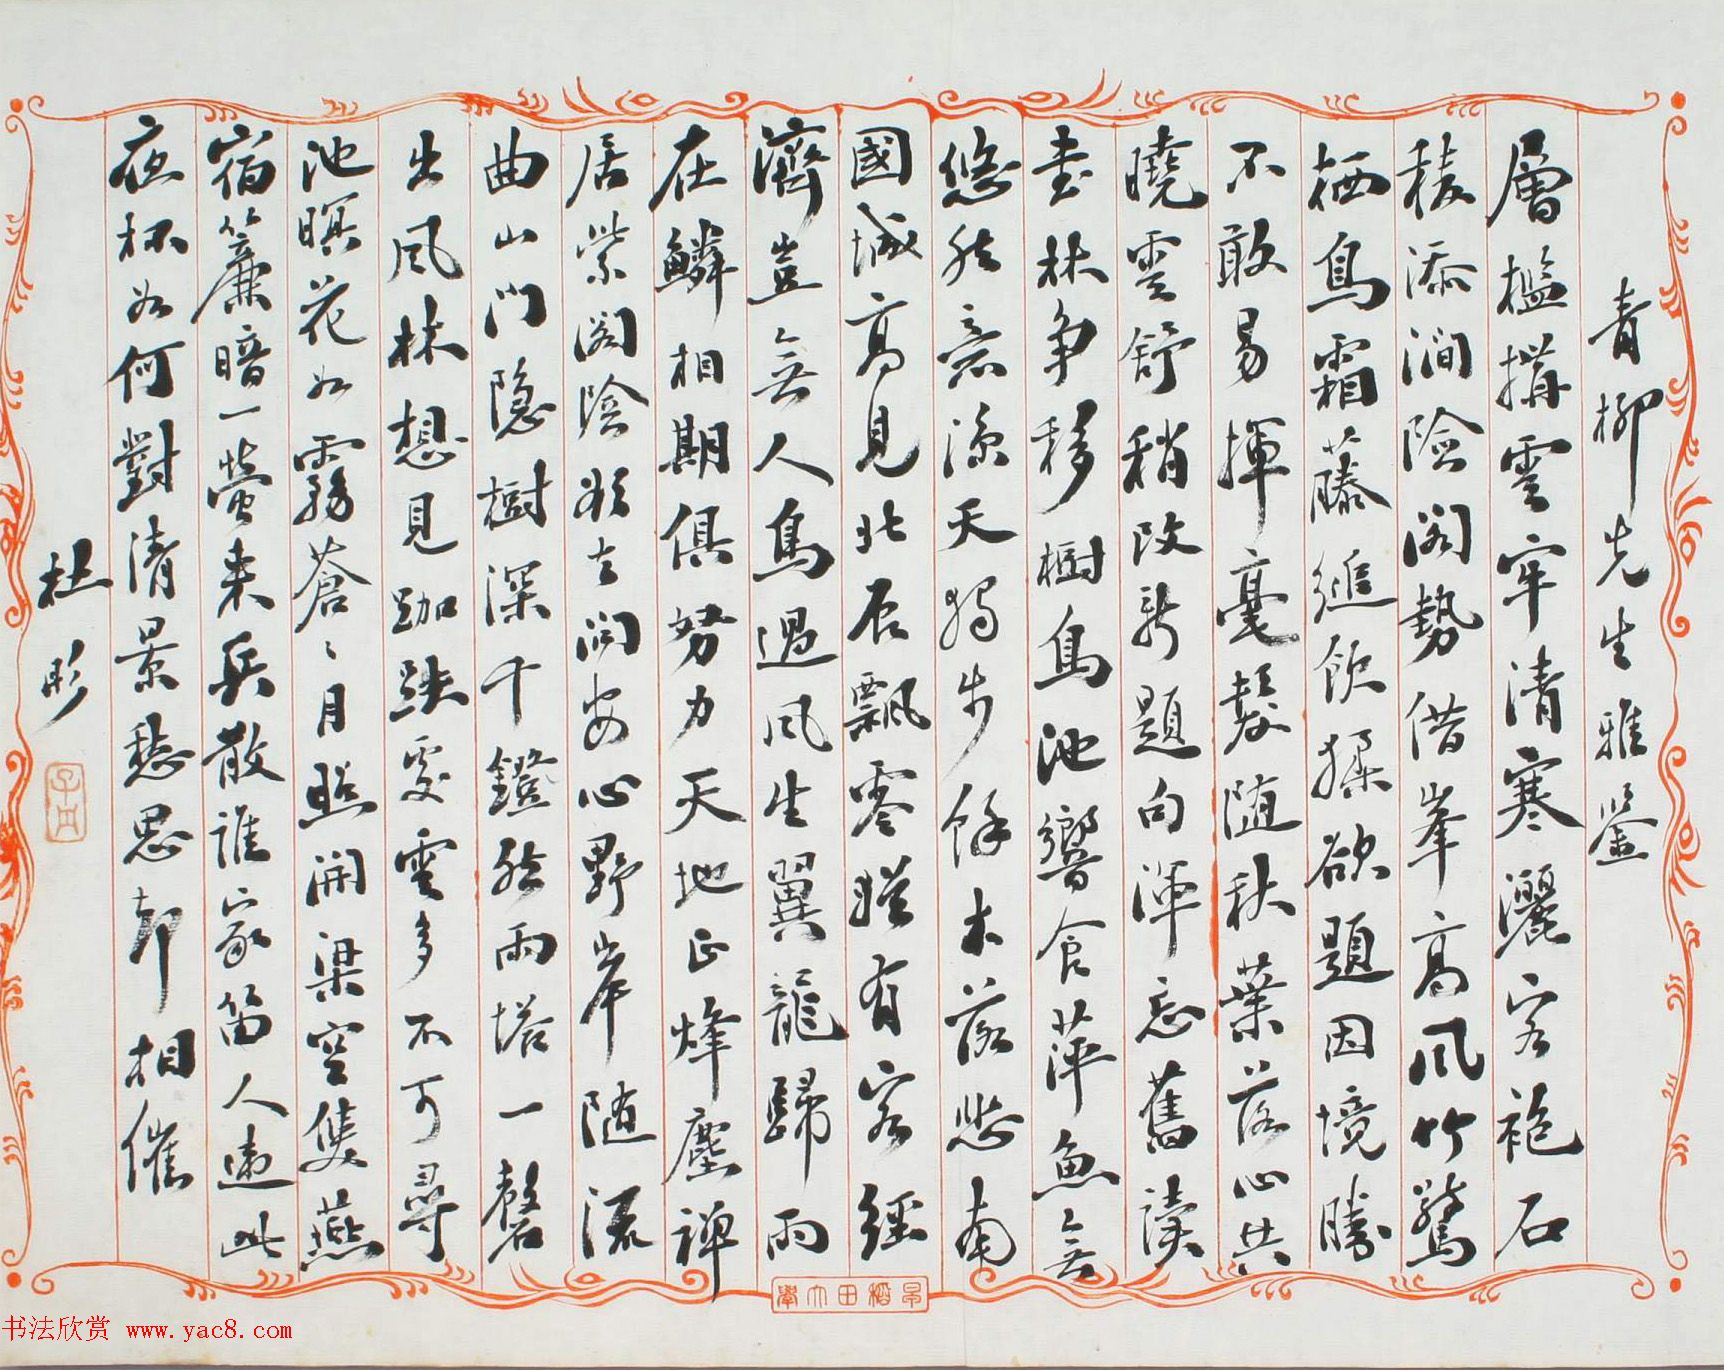 青柳先生雅鉴
層檻搆雲牢清寒灑客袍石
稜添澗險閣勢借峯高風竹驚
栖鳥霜藤縋飲猱欲題因境勝
不敢易揮毫鬢随秋葉落心共
曉雲舒稍改新題句渾忘舊讀
書林争移樹鳥池響食萍魚無
悠然意凉天獨步餘木落悲南
國城高見北辰飄零猶有客經
濟豈無人鳥過風生翼龍歸雨
在鱗相期俱努力天地正烽塵禅
居紫閣陰欲去問安心野岸随流
曲山門隐樹深千鐙然雨塔一磬
出風林想見跏趺處雲多不可尋
池暝花如霧蒼〻月照開梁空隻燕
宿簾暗一螢来兵散誰家笛人遠此
夜杯如何對清景愁思却相催
杜彤
子田
早稻田大學
书法欣赏 www.yac8.com